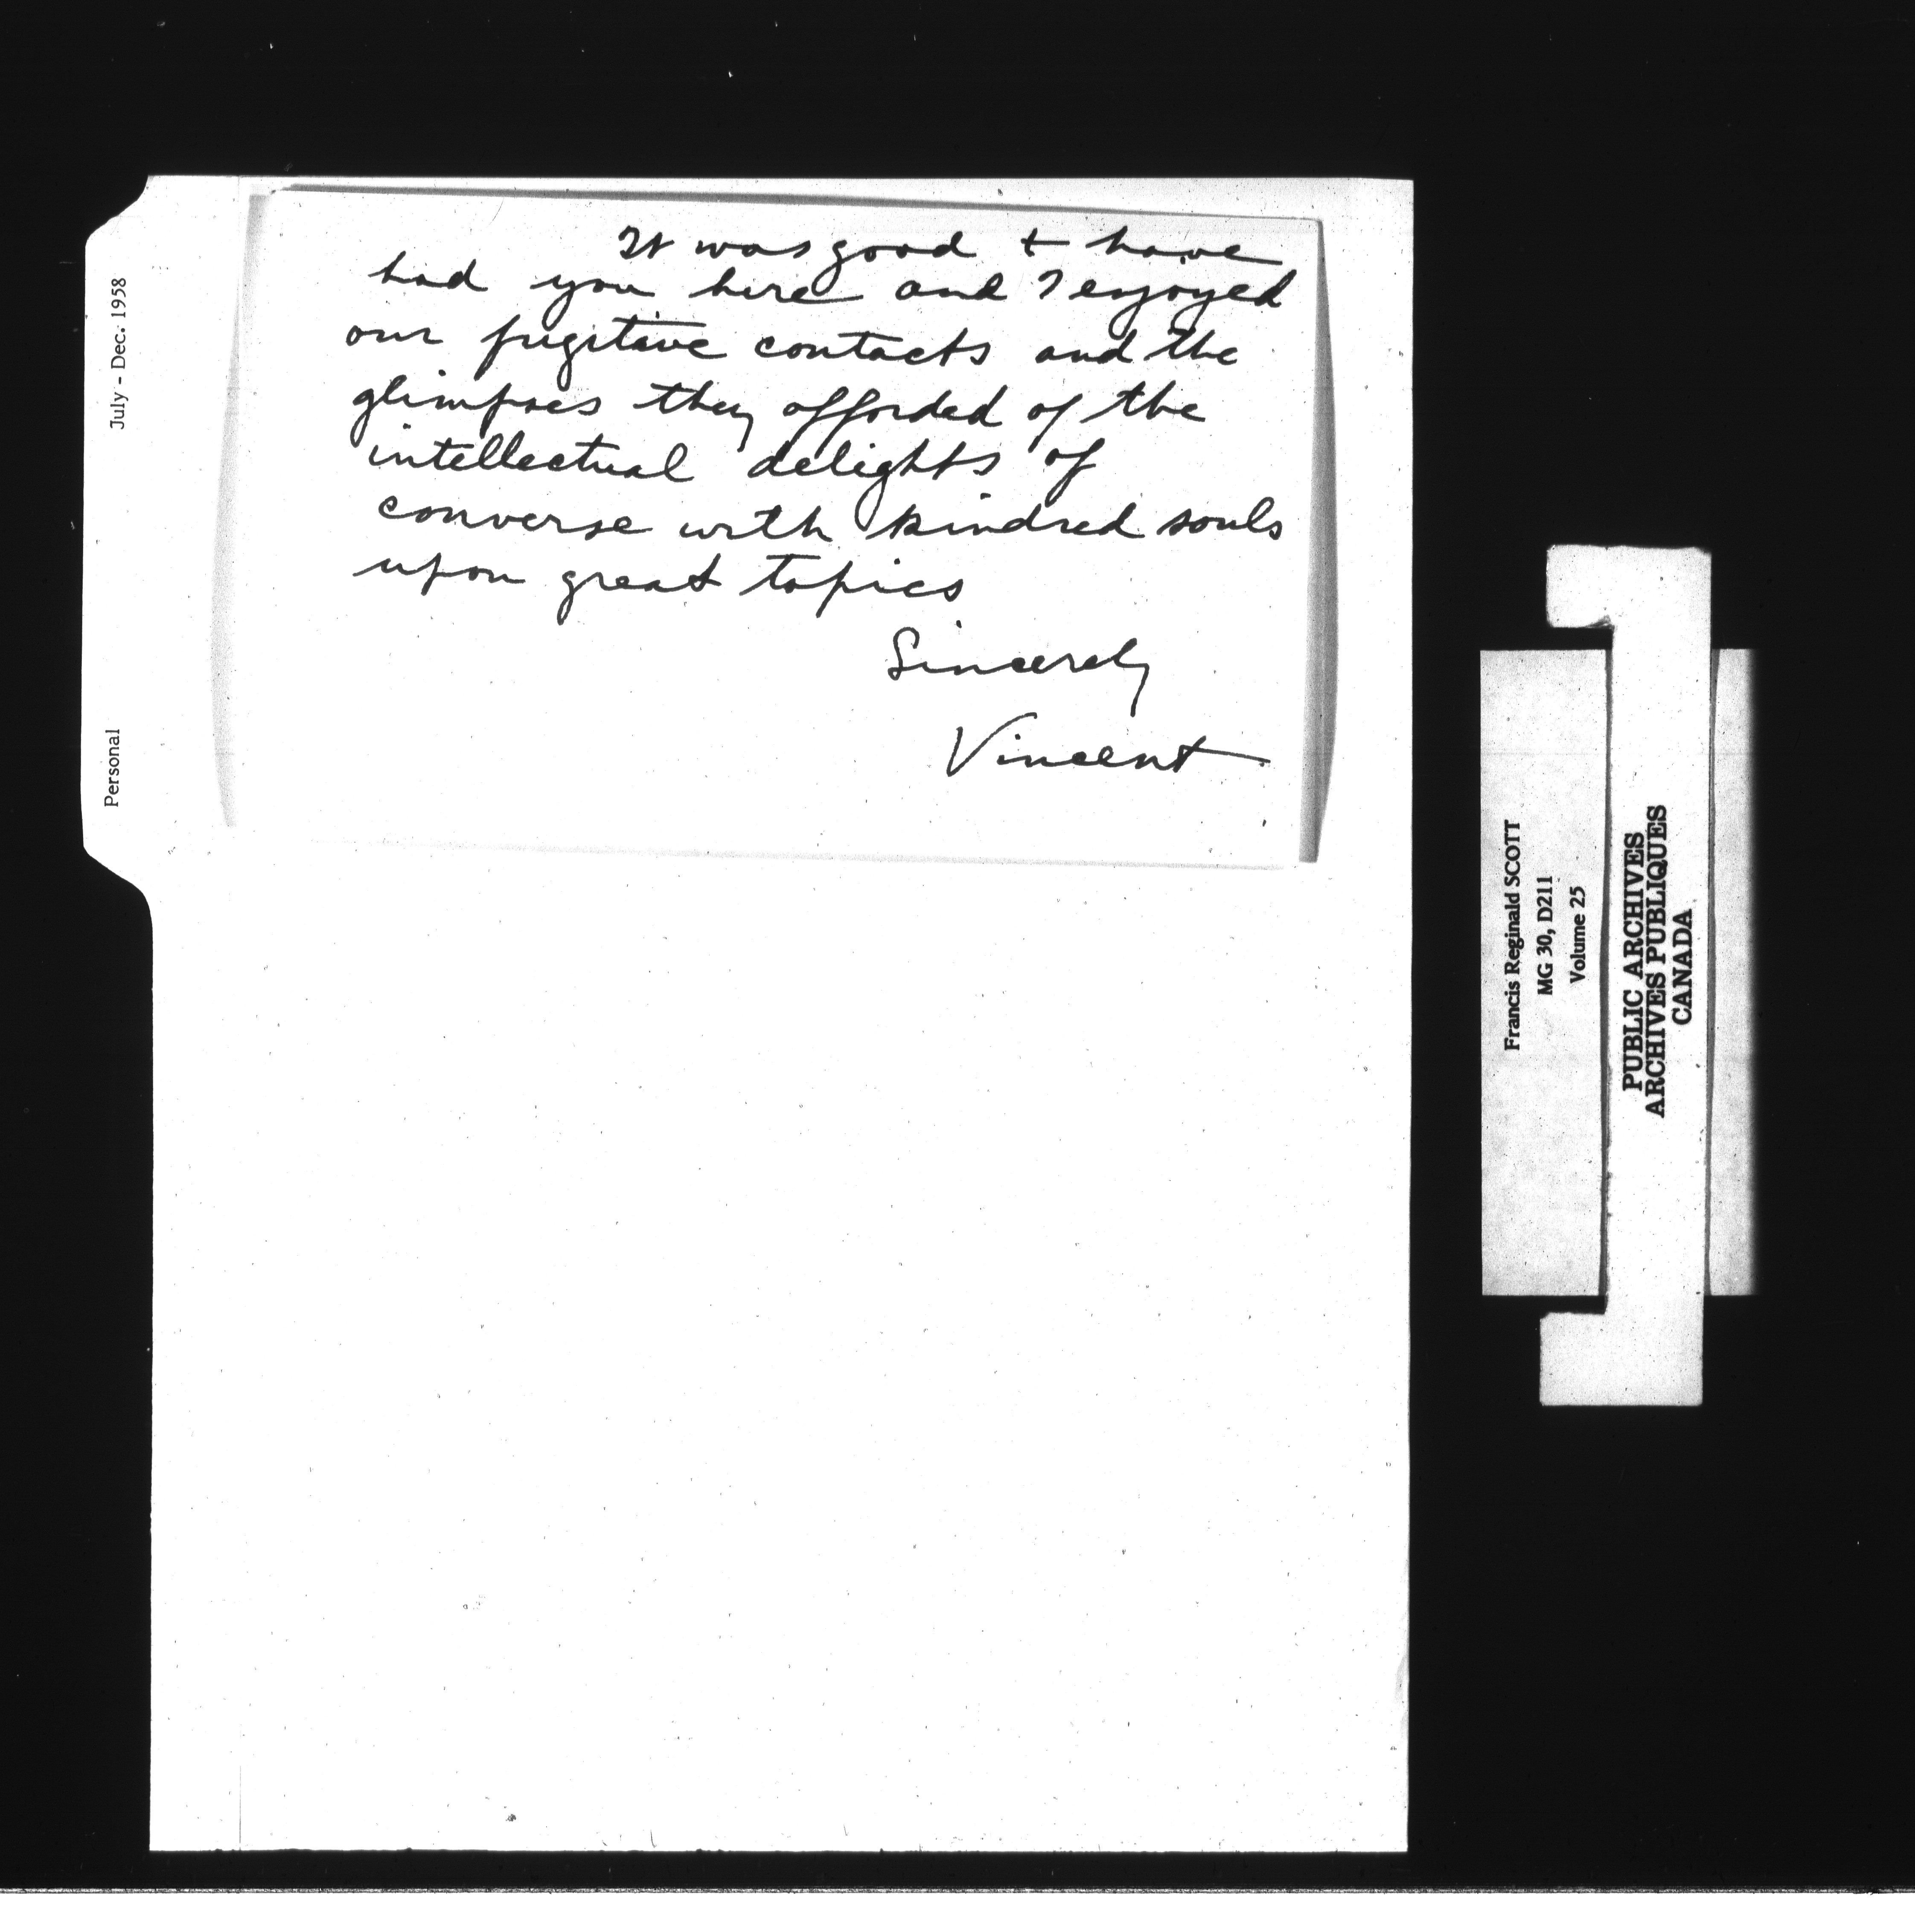 It was good to have
had you here and I enjoyed
our fugitive contacts and the
glimpses they afforded of the
intellectual delights of
converse with kindred souls
upon great topics
Sincerely
Vincent
July - Dec. 1958
Personal
Francis Reginald SCOTT
MG 30, D211
Volume 25
PUBLIC ARCHIVES
ARCHIVES PUBLIQUES
CANADA